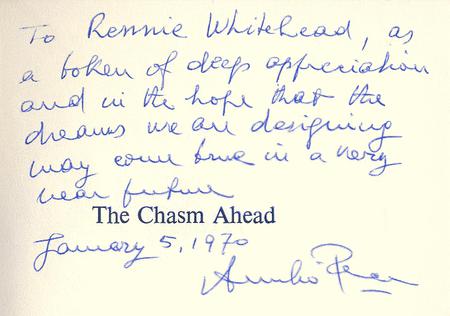 To Rennie Whitehead, as
a token of deep appreciation
and in the hope that the
dreams we are designing
may come true in a very
near future
The Chasm Ahead
January 5, 1970
Aurelio Peccei